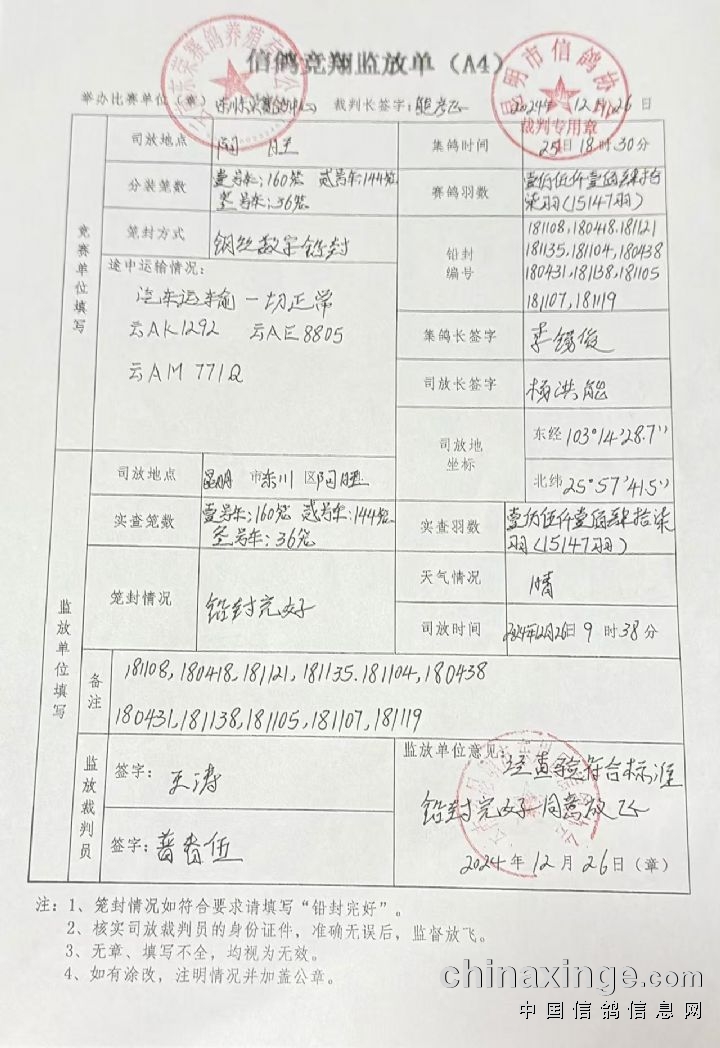 信鸽竞翔监放单（A4）
举办比赛单位（章） 裁判长签字： 2024年 12月 26 日
昆明市信鸽协
裁判专用章
竞赛单位填写
司放地点
集鸽时间 25日 18 时 30分
分装笼数 壹号车：160笼 贰号车：144笼
叁号车：36笼
赛鸽羽数 壹万伍仟壹佰肆拾
柒羽（15147羽）
笼封方式 钢丝数字铅封
铅封编号 181108,180418,181121
181135,181104,180438
180431,181138,181105
181107,181119
途中运输情况：
汽车运输 一切正常
云AK1292 云AE8805
云AM771Q
集鸽长签字
司放长签字 杨洪能
司放地坐标
东经 103°14'28.7"
北纬 25°57'41.5"
监放单位填写
司放地点 昆明 市东川 区阿旺
实查笼数 壹号车：160笼 贰号车：144笼
叁号车：36笼
实查羽数 壹万伍仟壹佰肆拾柒
羽（15147羽）
笼封情况 铅封完好
天气情况 晴
司放时间 2024年12月26日 9 时 38分
备注
181108,180418,181121,181135.181104,180438
180431,181138,181105,181107,181119
监放裁判员
签字：王涛
签字：
监放单位意见：经查验符合标准
铅封完好 同意放飞
2024年 12月 26日（章）
注：1、笼封情况如符合要求请填写“铅封完好”。
2、核实司放裁判员的身份证件，准确无误后，监督放飞。
3、无章、填写不全，均视为无效。
4、如有涂改，注明情况并加盖公章。
chinaxinge.com
中国信鸽信息网